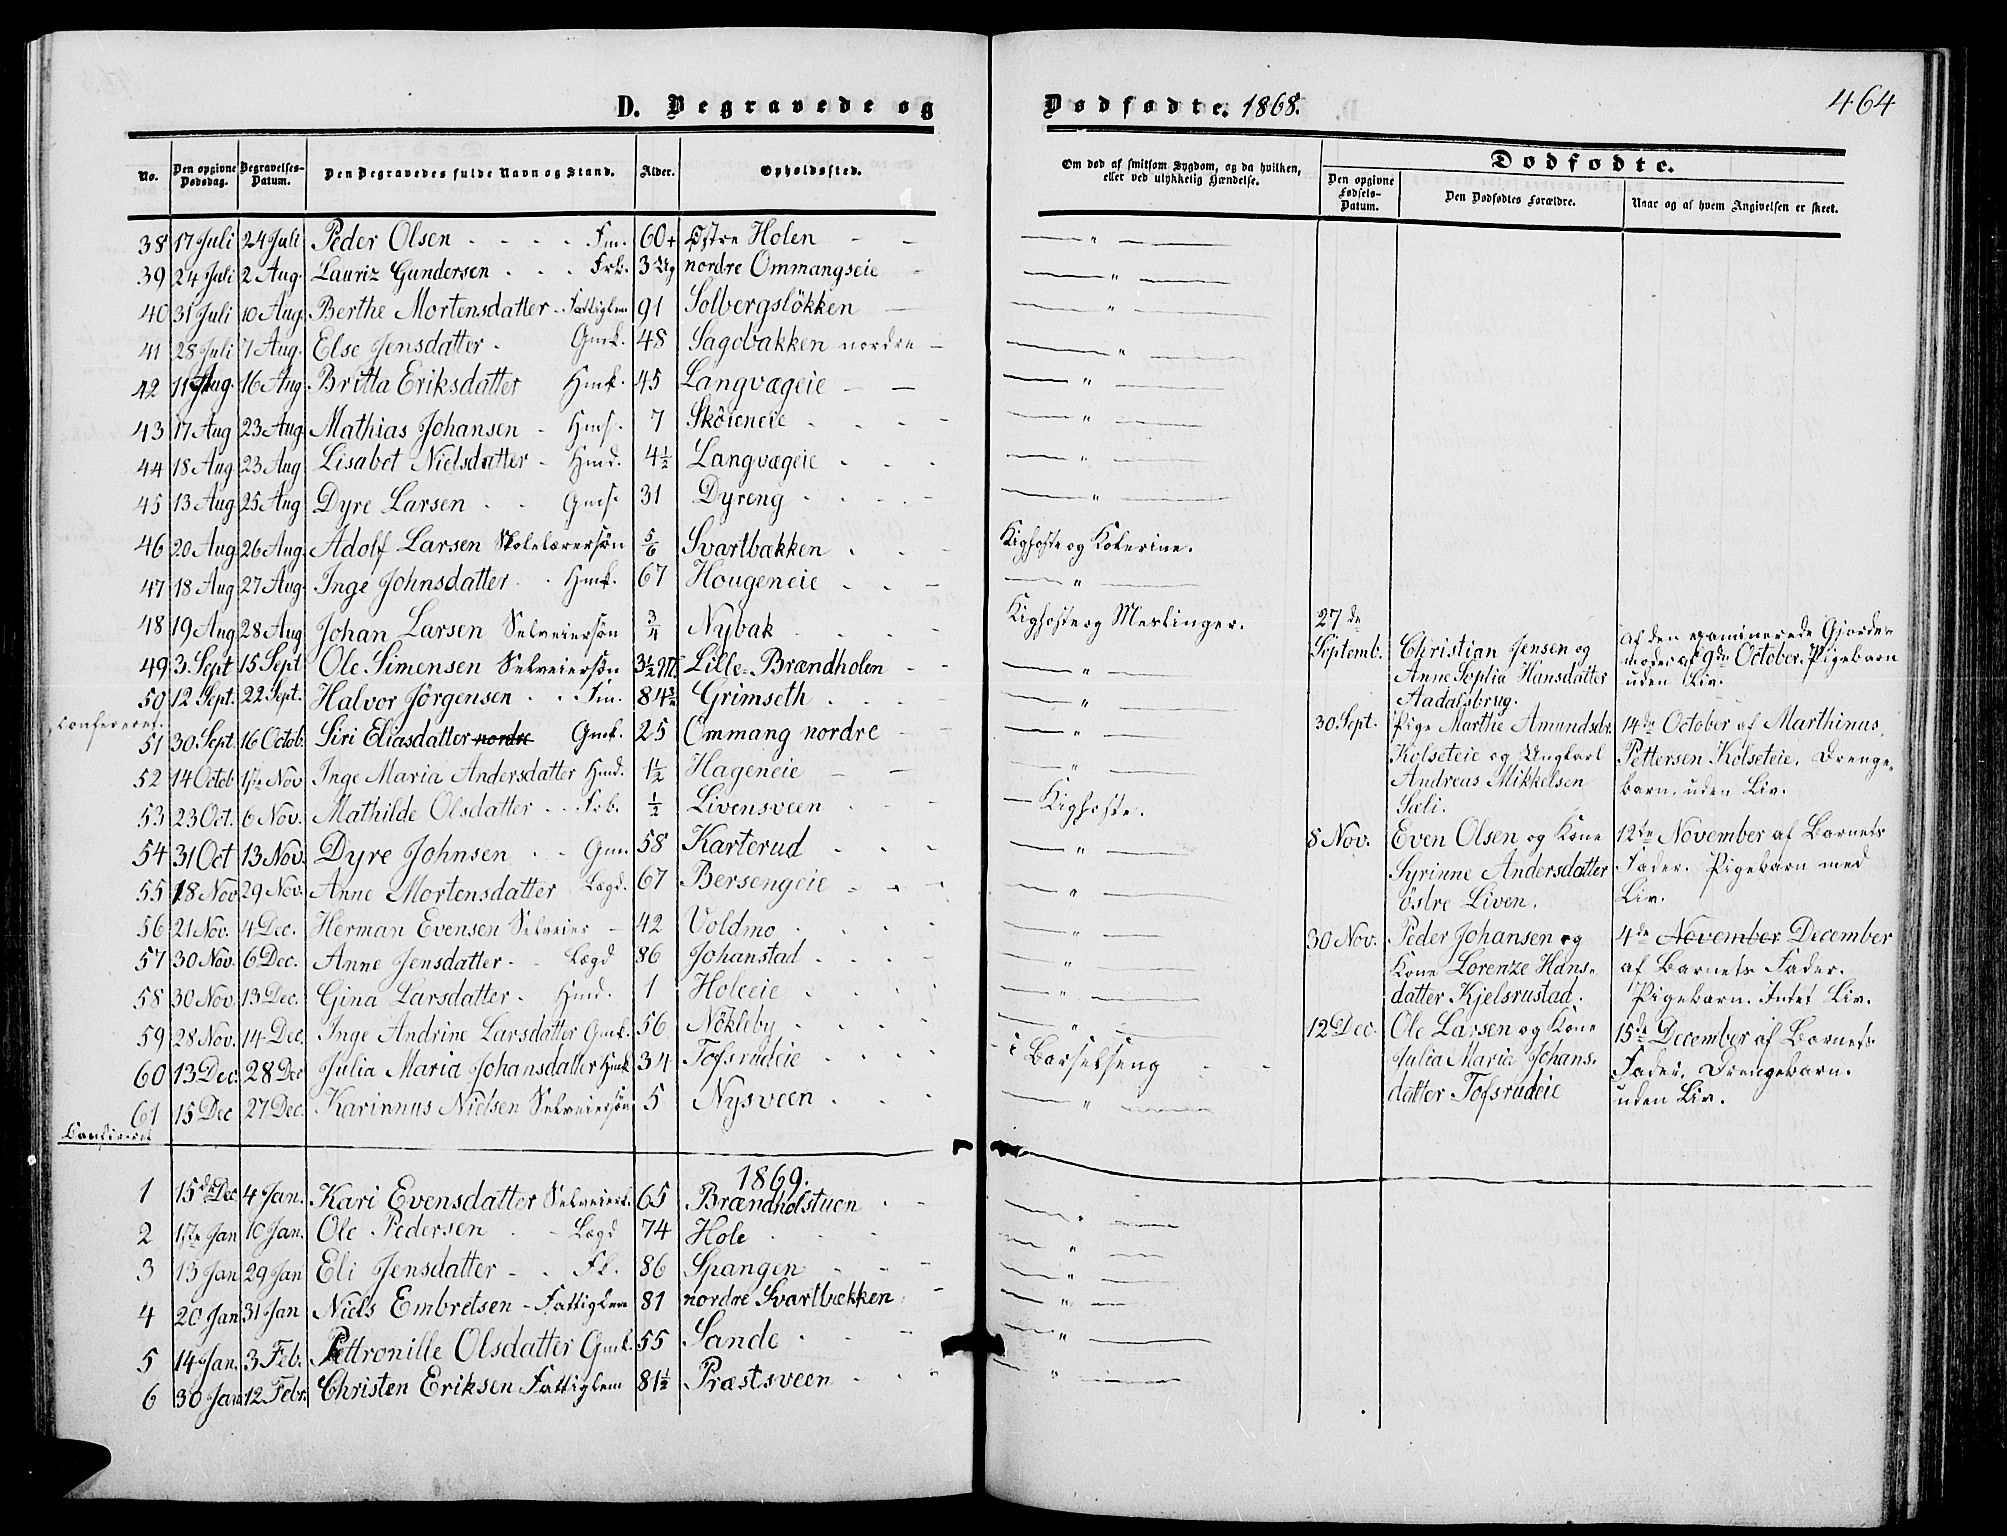 D. Begravede og Dødfødte. 1868. 464
No. Den opgivne Dødsdag. Begravelses-Datum. Den Begravedes fulde Navn og Stand. Alder. Opholdssted. Om død af smitsom Sygdom, og da hvilken, eller ved ulykkelig Hændelse.
Dødfødte.
Den opgivne Fødsels-Datum. Den Dødfødtes Forældre. Naar og af hvem Angivelsen er skeet.
38 17 Juli 24 Juli Peder Olsen - - - - Fm. 60+ Østre Holen - - — " —
39 24 Juli 2 Aug. Lauriz Gundersen . . . Frb. 3 Ug nordre Ommangseie - — " —
40 31 Juli 10 Aug. Berthe Mortensdatter - Fattiglem 91 Solbergsløkken — — " —
41 28 Juli 7 Aug. Else Jensdatter. Gmk. 48 Sagbakken nordre - — " —
42 11 Aug. 16 Aug. Britta Eriksdatter Hmk. 45 Langvægeie — — — " —
43 17 Aug 23 Aug. Mathias Johansen - Hms. 7 Skøieneie . . . - — " —
44 18 Aug 23 Aug Lisabet Nielsdatter - Hmd. 4½ Langvægeie . . . — " —
45 13 Aug 25 Aug Dyre Larsen . . Gms. 31 Dyreng - . . - — " —
46 20 Aug 26 Aug. Adolf Larsen Skolelærersøn 5/6 Svartbækken . . - Kighoste og Kolerine.
47 18 Aug 27 Aug. Inge Johnsdatter. . Hmk. 67 Hougeneie . . - — " —
48 19 Aug 28 Aug Johan Larsen Selveiersøn 3/4 Nybak . . . . Kighoste og Meslinger.
49 3. Sept 15 Sept Ole Simensen Selveiersøn 3½ M. Lille-Brændholen - - — " —
50 12 Sept. 22 Sept. Halvor Jørgensen . . Fm. 84¾ Grimseth . . . . — " —
Confereret.
51 30 Sept. 16 Octob. Siri Eliasdatter nordre Gmk. 25 Ommang nordre - - — " —
52 14 Octob 1ste Nov Inge Maria Andersdatter Hmd. 1½ Hageneie — — — " —
53 23 Oct. 6 Nov. Mathilde Olsdatter . . Frb. ½ Livensveen - - - — Kighoste.
54 31 Oct 13 Nov. Dyre Johnsen . . Gm. 58 Karterud . . . — " —
55 18 Nov 29 Nov. Anne Mortensdatter Lægd. 67 Bersengeie - . - — " —
56 21 Nov. 4 Dec. Herman Evensen Selveier - 42 Voldmo . . . . — " —
57 30 Nov. 6 Dec. Anne Jensdatter - - Lægd 86 Johanstad . . . . — " —
58 30 Nov. 13 Dec. Gina Larsdatter . Hmd. 1 Holeeie . . . . — " —
59 28 Nov. 14 Dec. Inge Andrine Larsdatter Gmk. 56 Nøkleby . . . . — " —
60 13 Dec. 28 Dec Julia Maria Johansdatter Hmk 34 Tofsrudeie . . . . - i Barselseng - -
61 15 Dec 27 Dec. Karinnus Nielsen Selveiersøn 5 Nysveen . . . — " —
Confereret
27de Septemb. Christian Jensen og Anne Sophia Hansdatter Aadalsbrug. af den examinerede Gjordemoder af 9de October. Pigebarn uden Liv.
30 Sept. Pige Marthe Amundsdr. Kolseteie og Ungkarl Andreas Mikkelsen Sæli. 14de October af Marthinus Pettersen Kolseteie. Drengebarn, uden Liv.
8 Nov. Even Olsen og Kone Syrinne Andersdatter Østre Liven. 12te November af Barnets Fader. Pigebarn med Liv.
30 Nov. Peder Johansen og Kone Lorenze Hansdatter Kjelsrustad. 4de November December af Barnets Fader. Pigebarn. Intet Liv.
12 Dec. Ole Larsen og Kone Julia Maria Johansdatter Tofsrudeie 15de December af Barnets Fader. Drengebarn. uden Liv.
1869.
1 15de Dec 4 Jan. Kari Evensdatter 65 Brændholstuen - - — " —
2 1ste Jan 10 Jan. Ole Pedersen . - Lægd 74 Hole . . . . — " —
3 13 Jan 29 Jan Eli Jensdatter - . Fl. 86 Spangen - - - — " —
4 20 Jan 31 Jan Niels Embretsen - Fattiglem 81 nordre Svartbækken . - — " —
5 14 Jan. 3 Feb. Pettronille Olsdatter Gmk. 55 Sande . . - — " —
6 30 Jan 12 Febr. Christen Eriksen Fattiglem 81½ Præstsveen . . . — " —